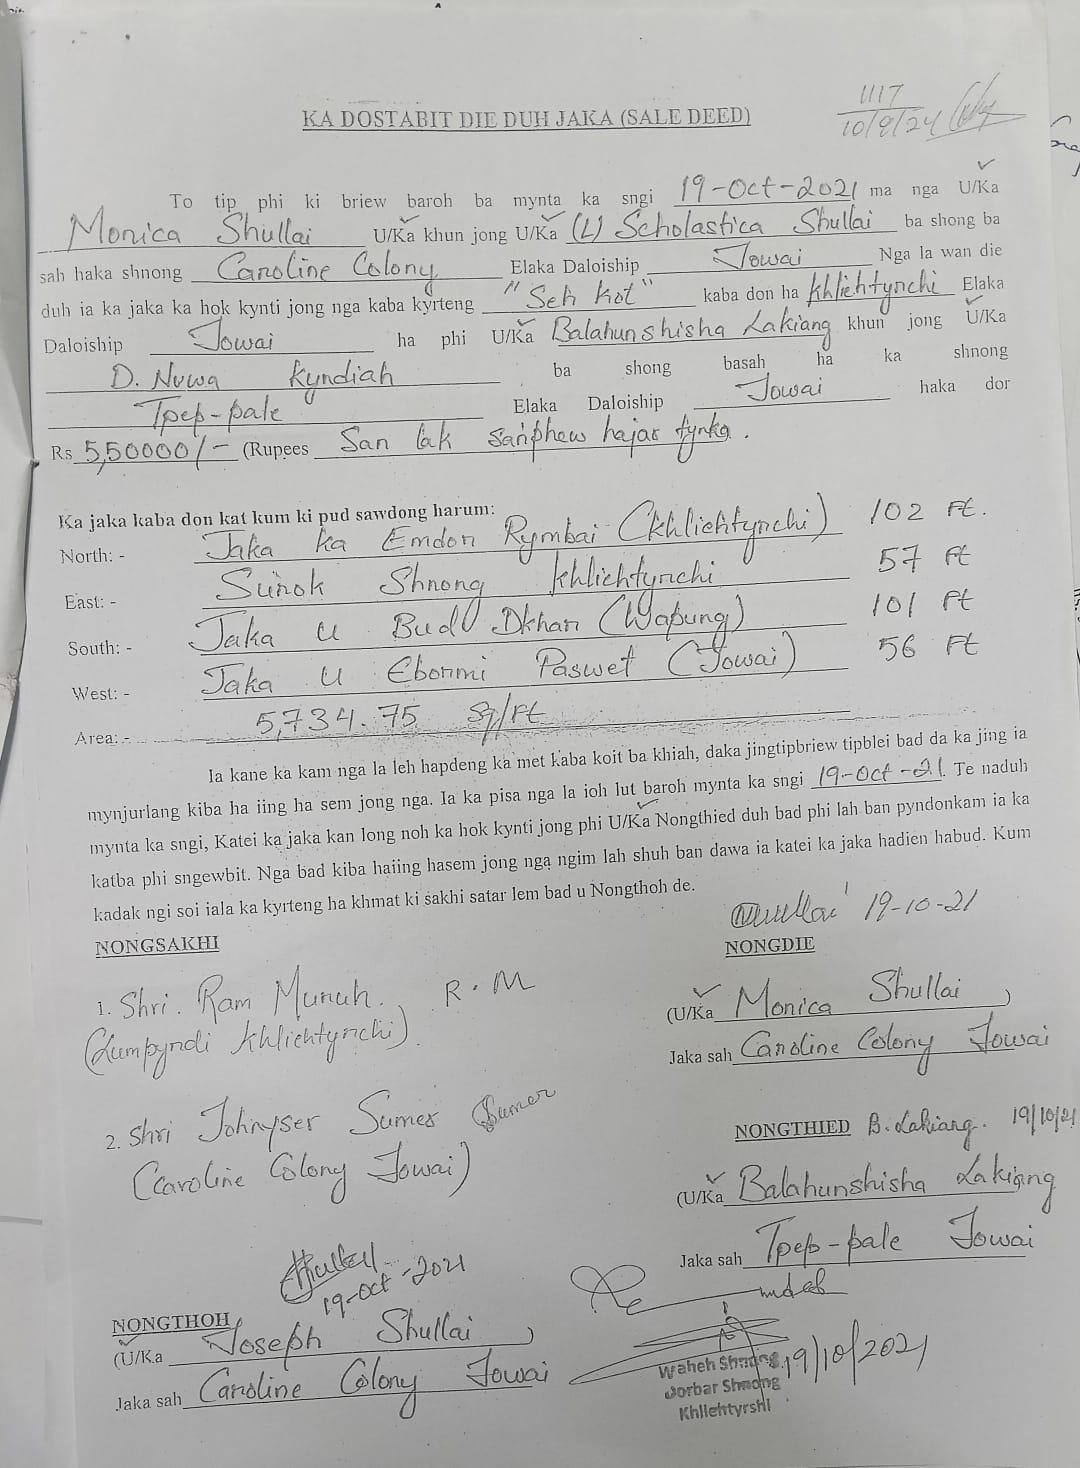 1117
10/9/24
KA DOSTABIT DIE DUH JAKA (SALE DEED)
To tip phi ki briew baroh ba mynta ka sngi 19-Oct-2021 ma nga U/Ka
Monica Shullai U/Ka khun jong U/Ka (L) Scholastica Shullai ba shong ba
sah haka shnong Caroline Colony Elaka Daloiship Jowai Nga la wan die
duh ia ka jaka ka hok kynti jong nga kaba kyrteng "Seh kot" kaba don ha khliehtynchi Elaka
Daloiship Jowai ha phi U/Ka Balahunshisha Lakiang khun jong U/Ka
D. Nuwa Kyndiah ba shong basah ha ka shnong
Tpep-pale Elaka Daloiship Jowai haka dor
Rs 5,50000/- (Rupees San lak sanphew hajar tynka.
Ka jaka kaba don kat kum ki pud sawdong harum:
North: - Jaka ka Emdon Rymbai (Khliehtynchi) 102 Ft.
East: - Surok Shnong khliehtynchi 57 Ft
South: - Jaka u Budd Dkhar (Wapung) 101 Ft
West: - Jaka u Ebormi Paswet (Jowai) 56 Ft
Area: - 5,734.75 Sq/Ft
Ia kane ka kam nga la leh hapdeng ka met kaba koit ba khiah, daka jingtipbriew tipblei bad da ka jing ia
mynjurlang kiba ha iing ha sem jong nga. Ia ka pisa nga la ioh lut baroh mynta ka sngi 19-Oct-21. Te naduh
mynta ka sngi, Katei ka jaka kan long noh ka hok kynti jong phi U/Ka Nongthied duh bad phi lah ban pyndonkam ia ka
katba phi sngewbit. Nga bad kiba haiing hasem jong nga ngim lah shuh ban dawa ia katei ka jaka hadien habud. Kum
kadak ngi soi iala ka kyrteng ha khmat ki sakhi satar lem bad u Nongthoh de.
NONGSAKHI
1. Shri. Ram Muruh. R.M
(Lumpyrdi Khliehtyrchi).
2. Shri Johnyser Sumer Sumer
(Caroline Colony Jowai)
19-Oct-2021
NONGTHOH
(U/Ka Joseph Shullai )
Jaka sah Caroline Colony Jowai
MShullai 19-10-21
NONGDIE
(U/Ka Monica Shullai )
Jaka sah Caroline Colony Jowai
NONGTHIED B. Lakiang. 19/10/21
(U/Ka Balahunshisha Lakiang
Jaka sah Tpep-pale Jowai
19/10/2021
Waheh Shnong
Dorbar Shnong
Khliehtyrshi